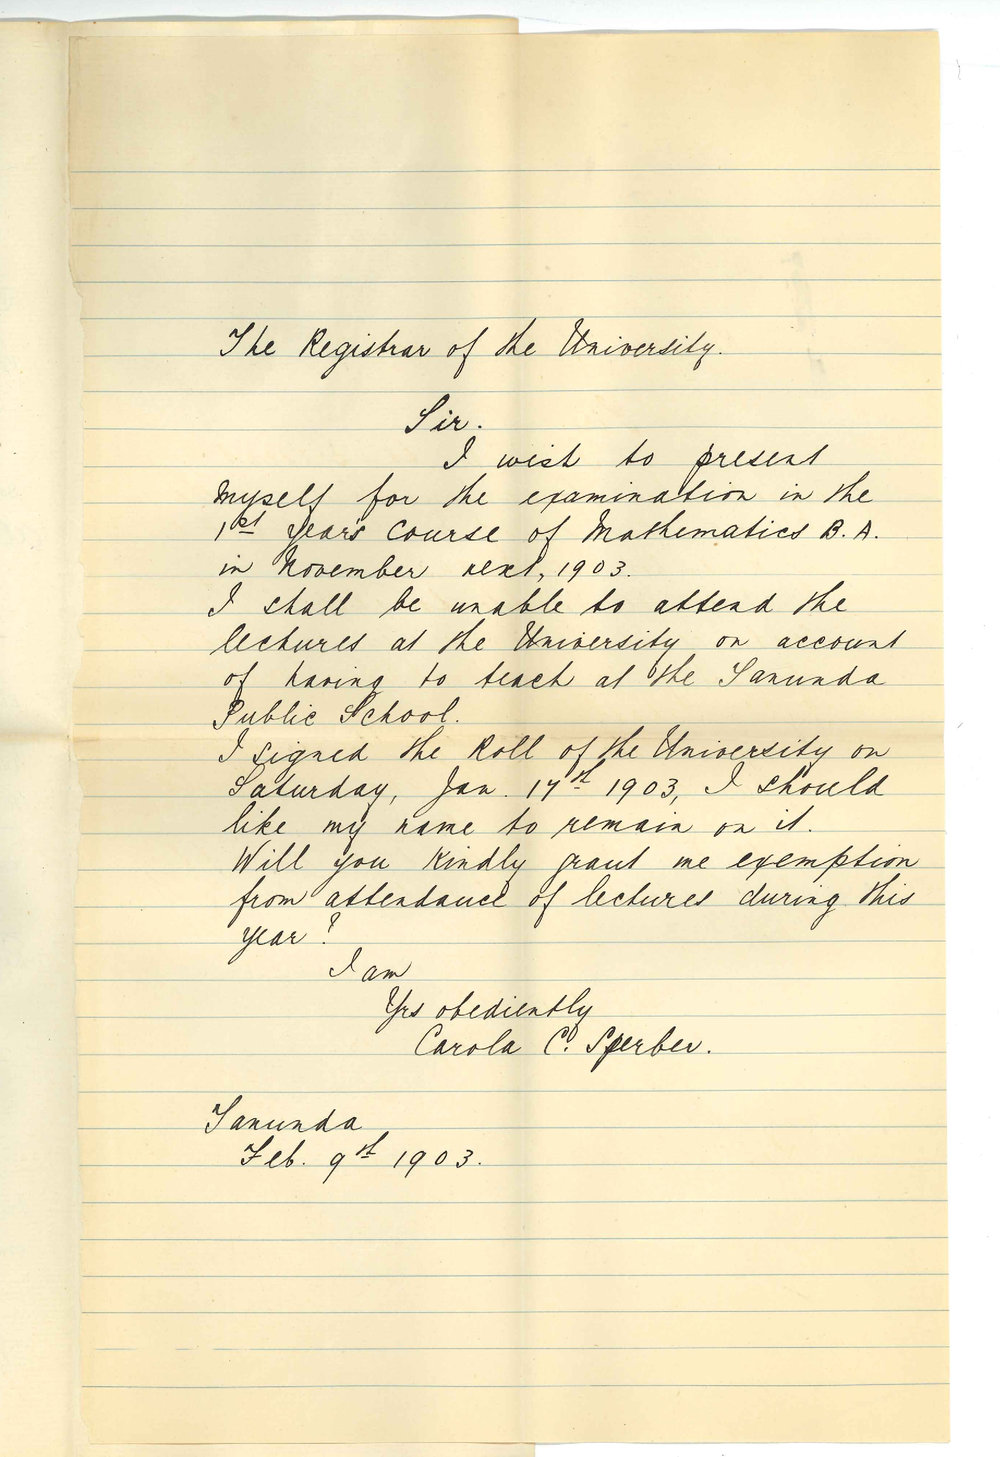 The Registrar of the University.
Sir.
I wish to present
myself for the examination in the
1st years course of Mathematics B. A.
in November next, 1903.
I shall be unable to attend the
lectures at the University on account
of having to teach at the Tanunda
Public School.
I signed the Roll of the University on
Saturday, Jan. 17th 1903, I should
like my name to remain on it.
Will you kindly grant me exemption
from attendance of lectures during this
year?
I am
Yrs obediently
Carola C. Sperber.
Tanunda
Feb. 9th 1903.